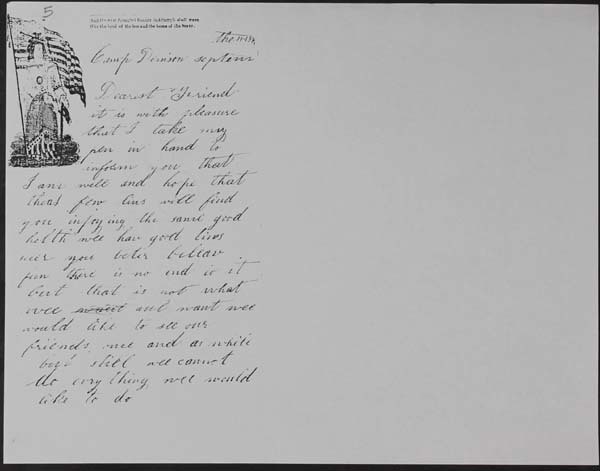 5
And the star spangled banner in triumph shall wave
O'er the land of the free and the home of the brave.
the
Camp Denison septem
Dearest Friend
it is with pleasure
that I take my
pen in hand to
inform you that
I am well and hope that
theas few lins will find
you injoying the same good
helth wee hav good tims
heir you beter beleav
fun there is no end to it
but that is not what
wee all want wee
would like to see our
friends once and as while
but still wee cannot
do evry thing wee would
like to do